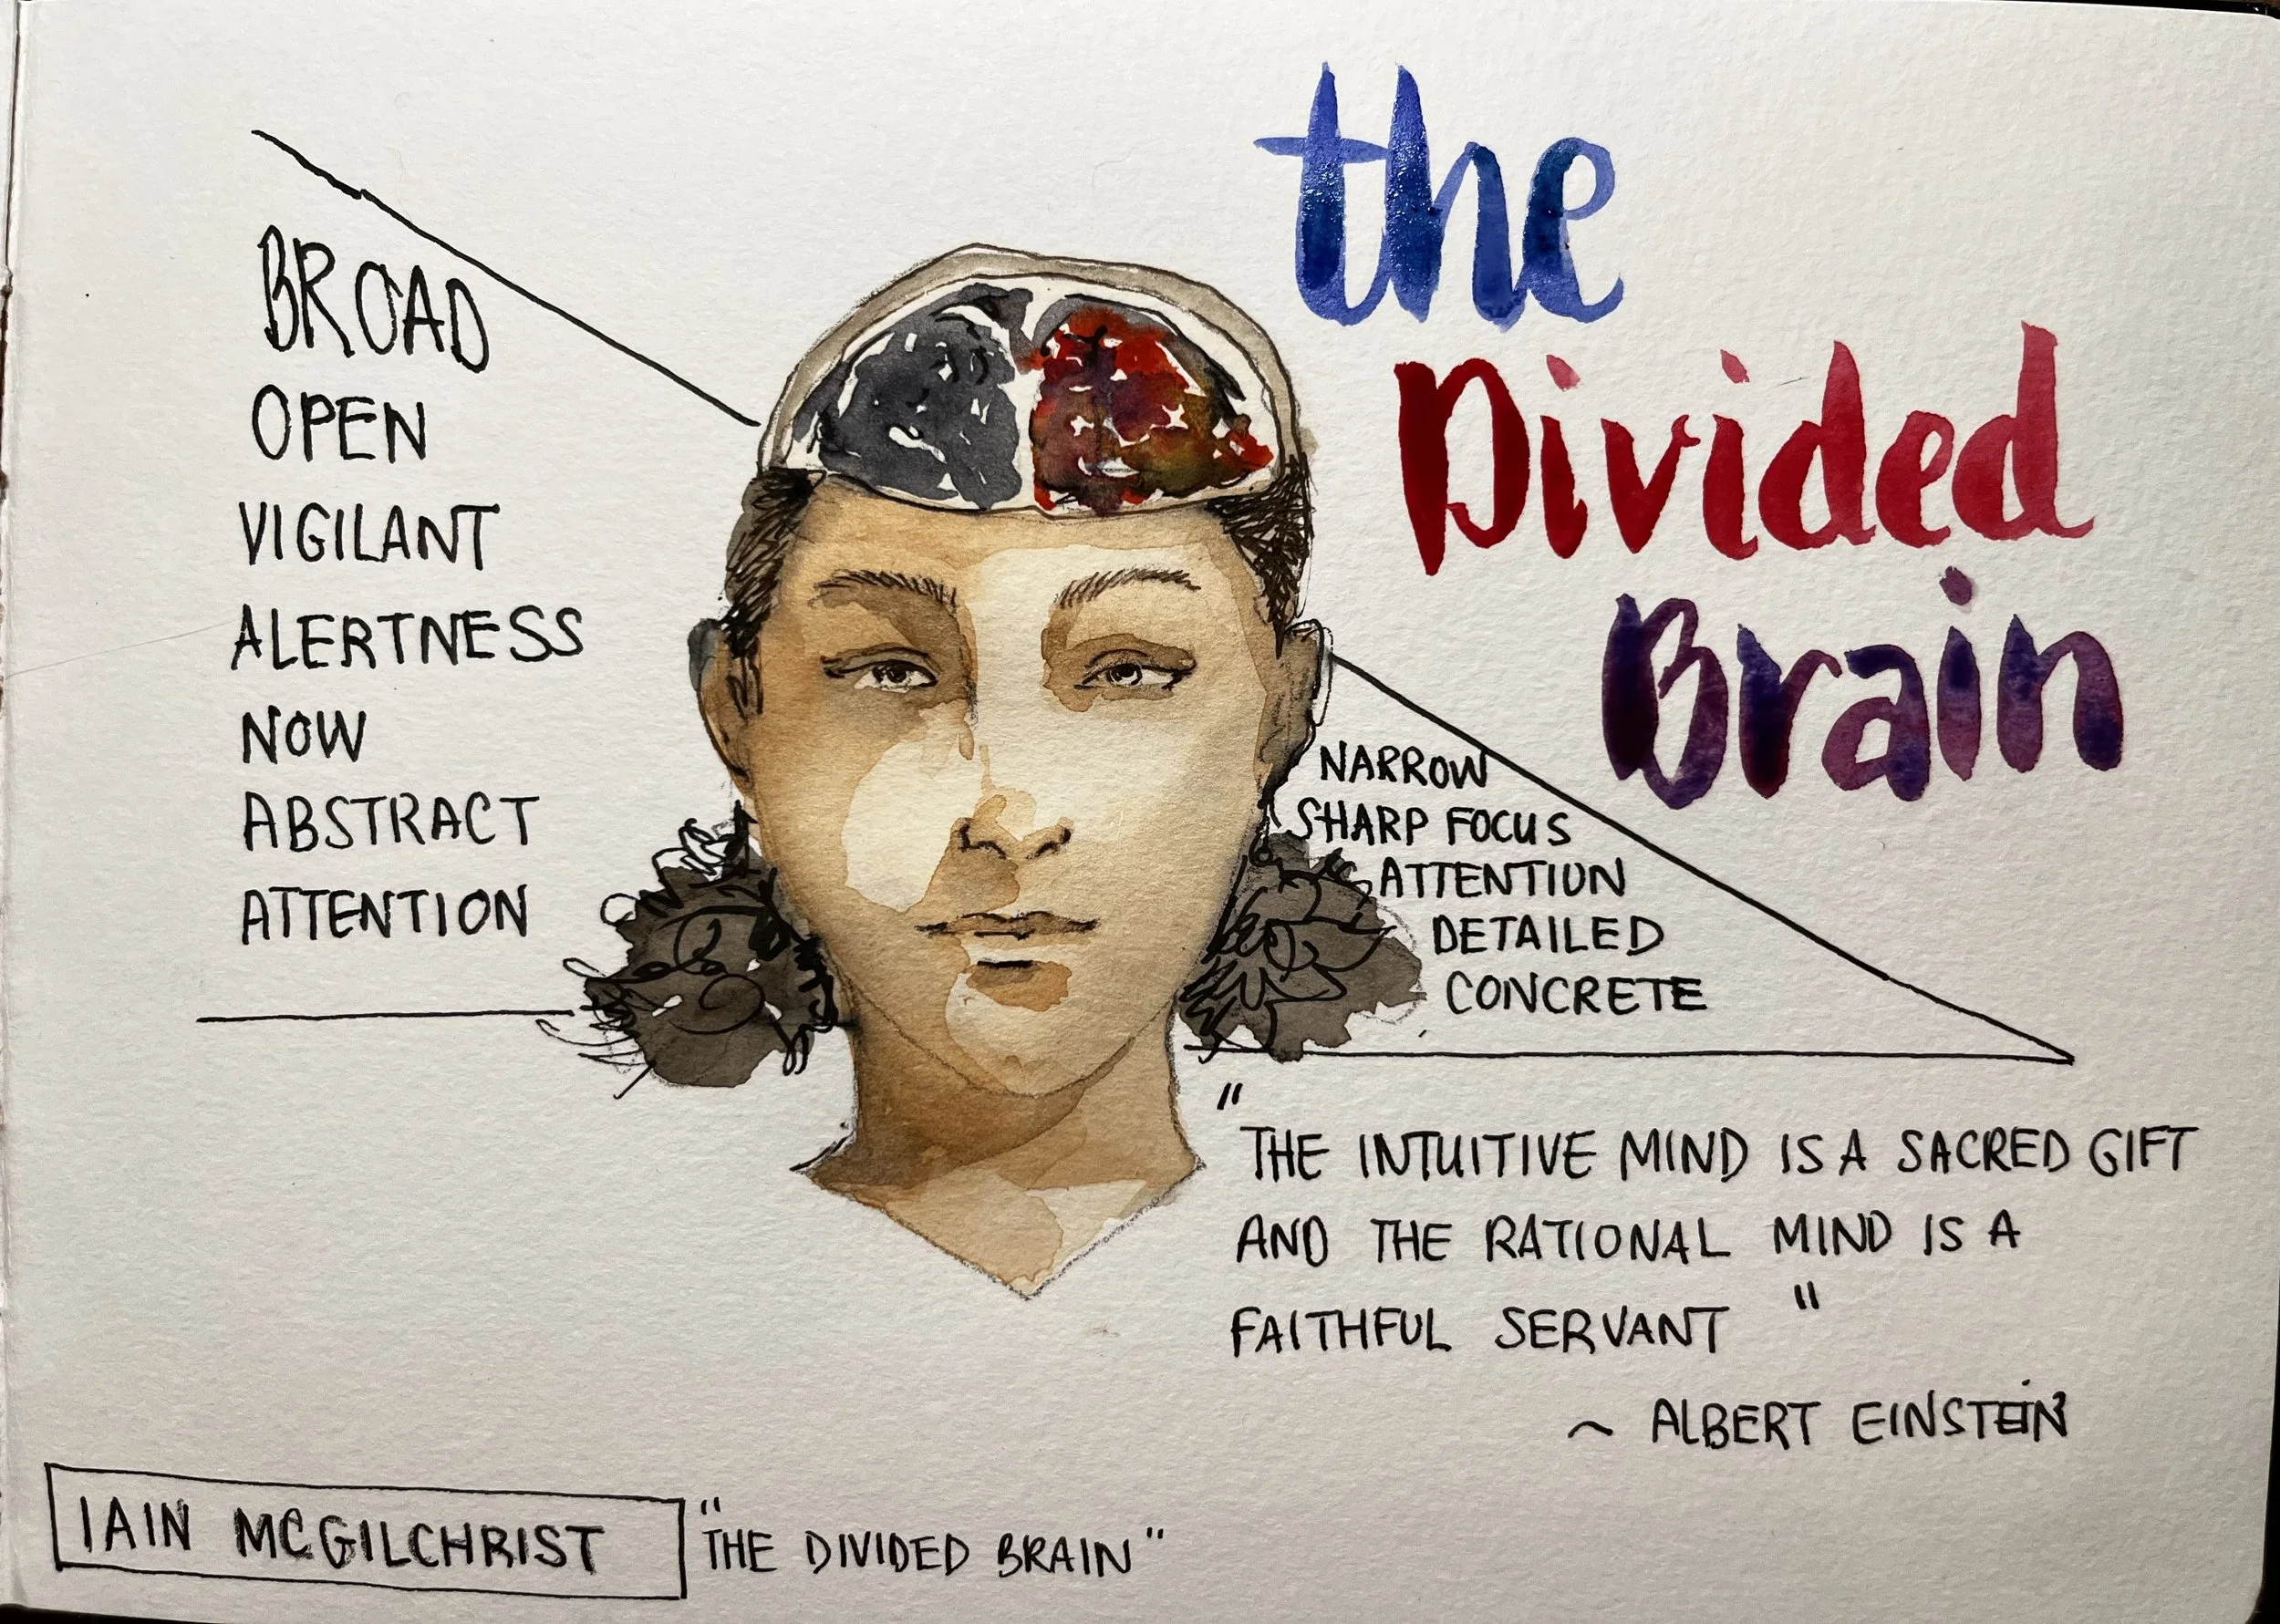 the
Divided
Brain
BROAD
OPEN
VIGILANT
ALERTNESS
NOW
ABSTRACT
ATTENTION
NARROW
SHARP FOCUS
ATTENTION
DETAILED
CONCRETE
"THE INTUITIVE MIND IS A SACRED GIFT
AND THE RATIONAL MIND IS A
FAITHFUL SERVANT "
~ ALBERT EINSTEIN
IAIN MCGILCHRIST "THE DIVIDED BRAIN"